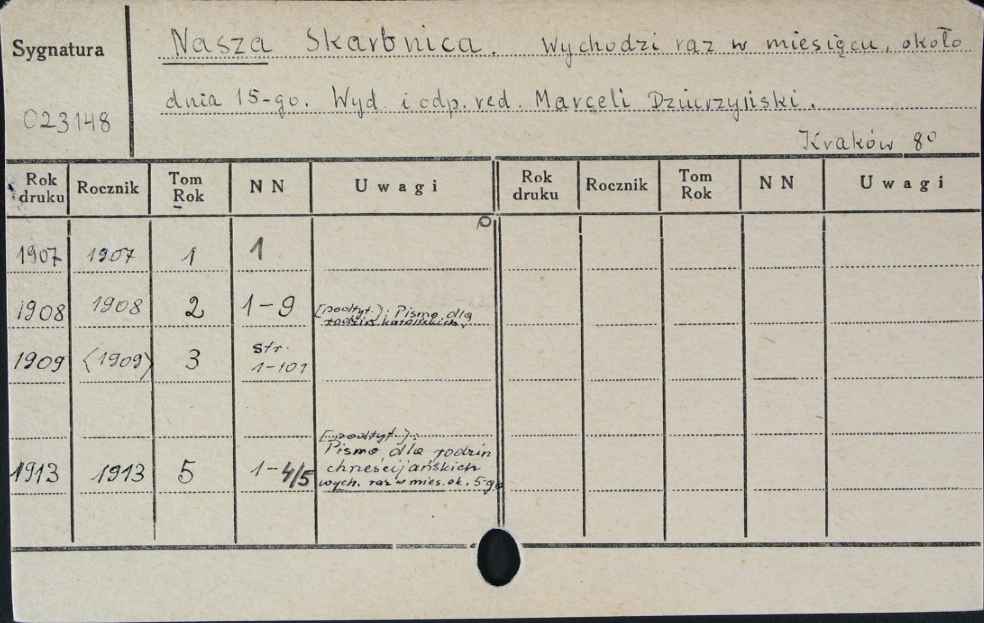 Sygnatura
Nasza Skarbnica. Wychodzi raz w miesiącu, około
dnia 15-go. Wyd. i odp. red. Marceli Dziurzyński.
023148
Kraków 8°
Rok druku Rocznik Tom Rok NN Uwagi Rok druku Rocznik Tom Rok NN Uwagi
1907 1907 1 1
1908 1908 2 1-9 [podtyt.]: Pismo dla
rodzin katolickich.
1909 (1909) 3 str. 1-101
[podtyt.]:
Pismo dla rodzin
chrześcijańskich
1913 1913 5 1-4/5 wych. raz w mies. ok. 5-go